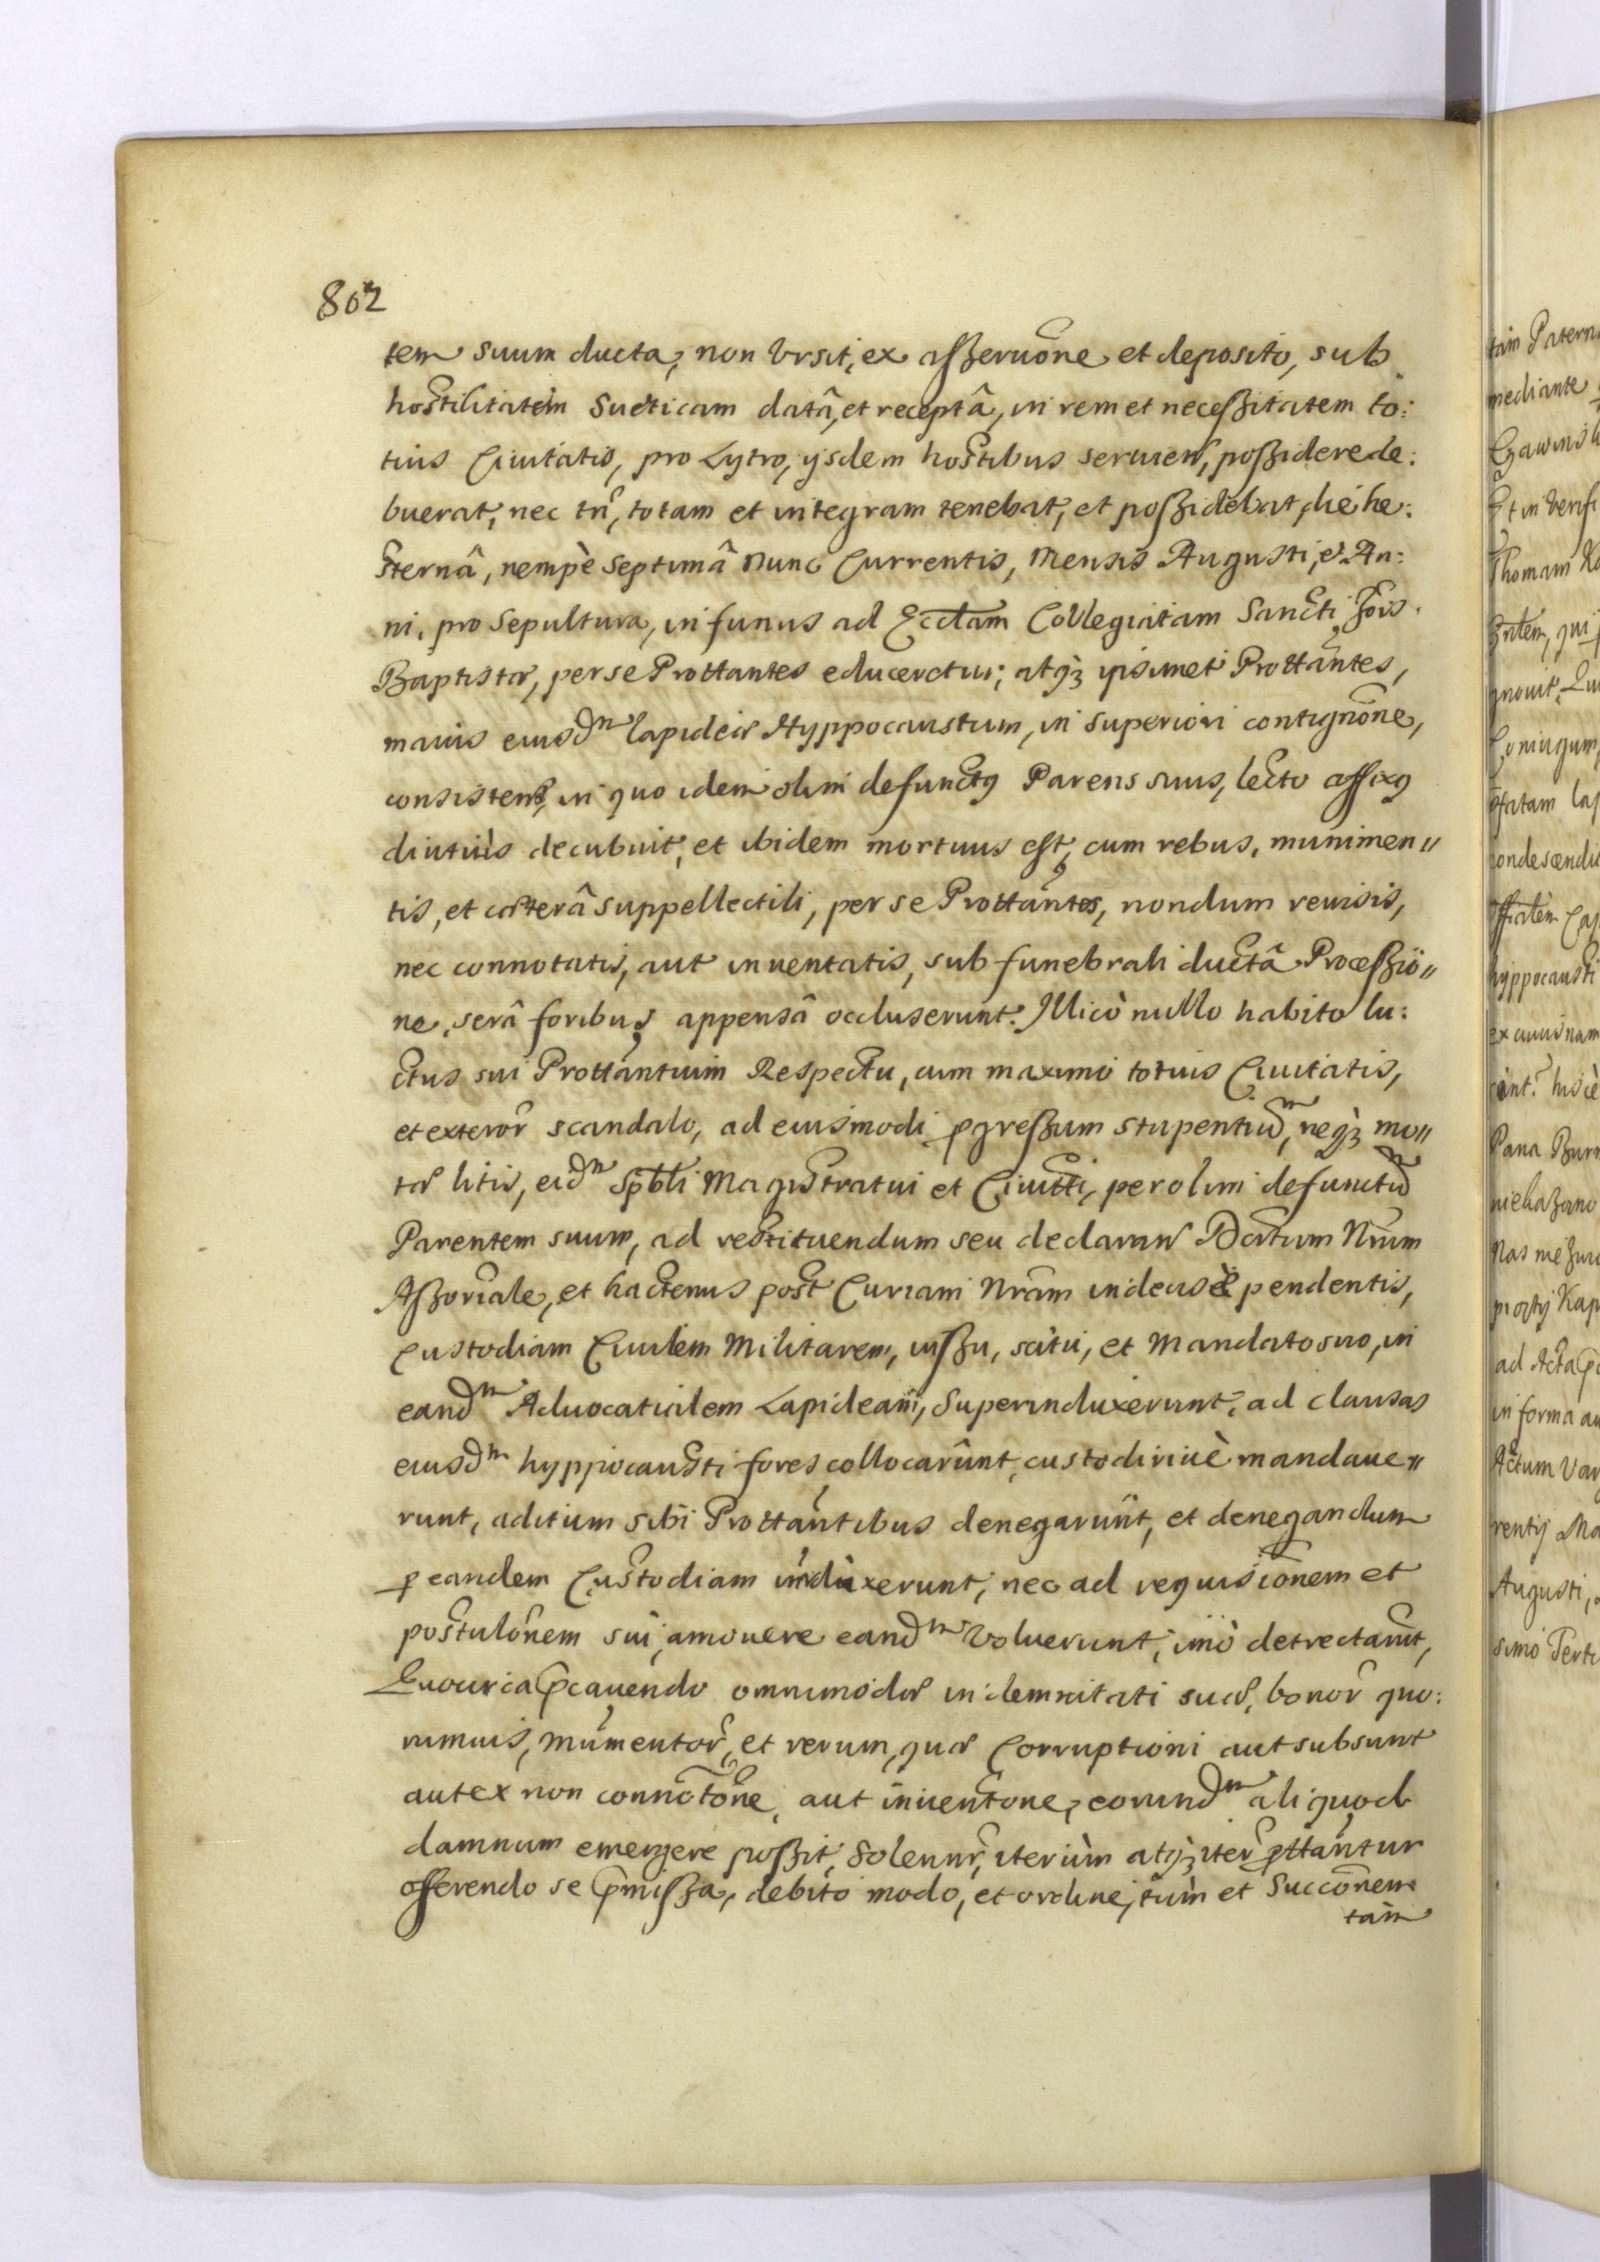 802
tem suum ducta, non Vrsit, ex aßeruõne et deposito, sub
hostilitatem Sueticam datâ, et receptâ, in rem et neceßitatem to:
tius Ciuitatis, pro Lytro, ijsdem hostibus seruien, poßidere de:
buerat, nec tñ, totam et integram tenebat, et poßidebat, die he:
sternâ, nempè Septimâ Nunc Currentis, Mensis Augusti, et An:
ni, pro Sepultura, in funus ad Ecctam Collegiatam Sancti Jois
Baptistæ, per se Prottantes educeretur; atq3 ipsimet Prottantes,
maius eiusdm lapideæ Hyppocaustum, in superiori contignõne,
consistens, in quo idem olim defunctg Parens suus, lecto affixg
diutiùs decubuit, et ibidem mortuus est, cum rebus, munimen"
tis, et cæterâ suppellectili, per se Prottantes, nondum reuisis,
nec connotatis, aut inuentatis, sub funebrali ductâ Proceßio"
ne, serâ foribus appensâ occluserunt. Illicò nullo habito lu:
ctus sui Prottantium Respectu, cum maximo totius Ciuitatis,
et exteror scandalo, ad eiusmodi pgreßum stupentiũ, neq3 mo"
tæ litis, eidm Spbli Magistratui et Ciuitti, per olim defunctũ
Parentem suum, ad restituendum seu declaran Dectum Nrum
Aßoriale, et hactenus post Curiam Nram indecisè pendentis,
Custodiam Ciuilem Militarem, iußu, scitu, et Mandato suo, in
eandm Aduocatialem Lapideam, Superinduxerunt, ad clausas
eiusdm hyppocausti fores collocarunt, custodiriuè mandaue"
runt, aditum sibi Prottantibus denegarunt, et denegandum
p eandem Custodiam induxerunt, nec ad requisionem et
postulõnem sui, amouere eandm Voluerunt, imò detrectarunt,
Quocirca pcauendo omnimodæ indemnitati suæ, bonor quo:
rumuis, Mumentor, et rerum, quæ Corruptioni aut subsunt
aut ex non connotõne, aut inuentõne, eorundm aliquod
damnum emergere poßit, Solennr, iterùm atq3 iter pttantur
offerendo se pmißa, debito modo, et ordine, tum et Succõnem
tam